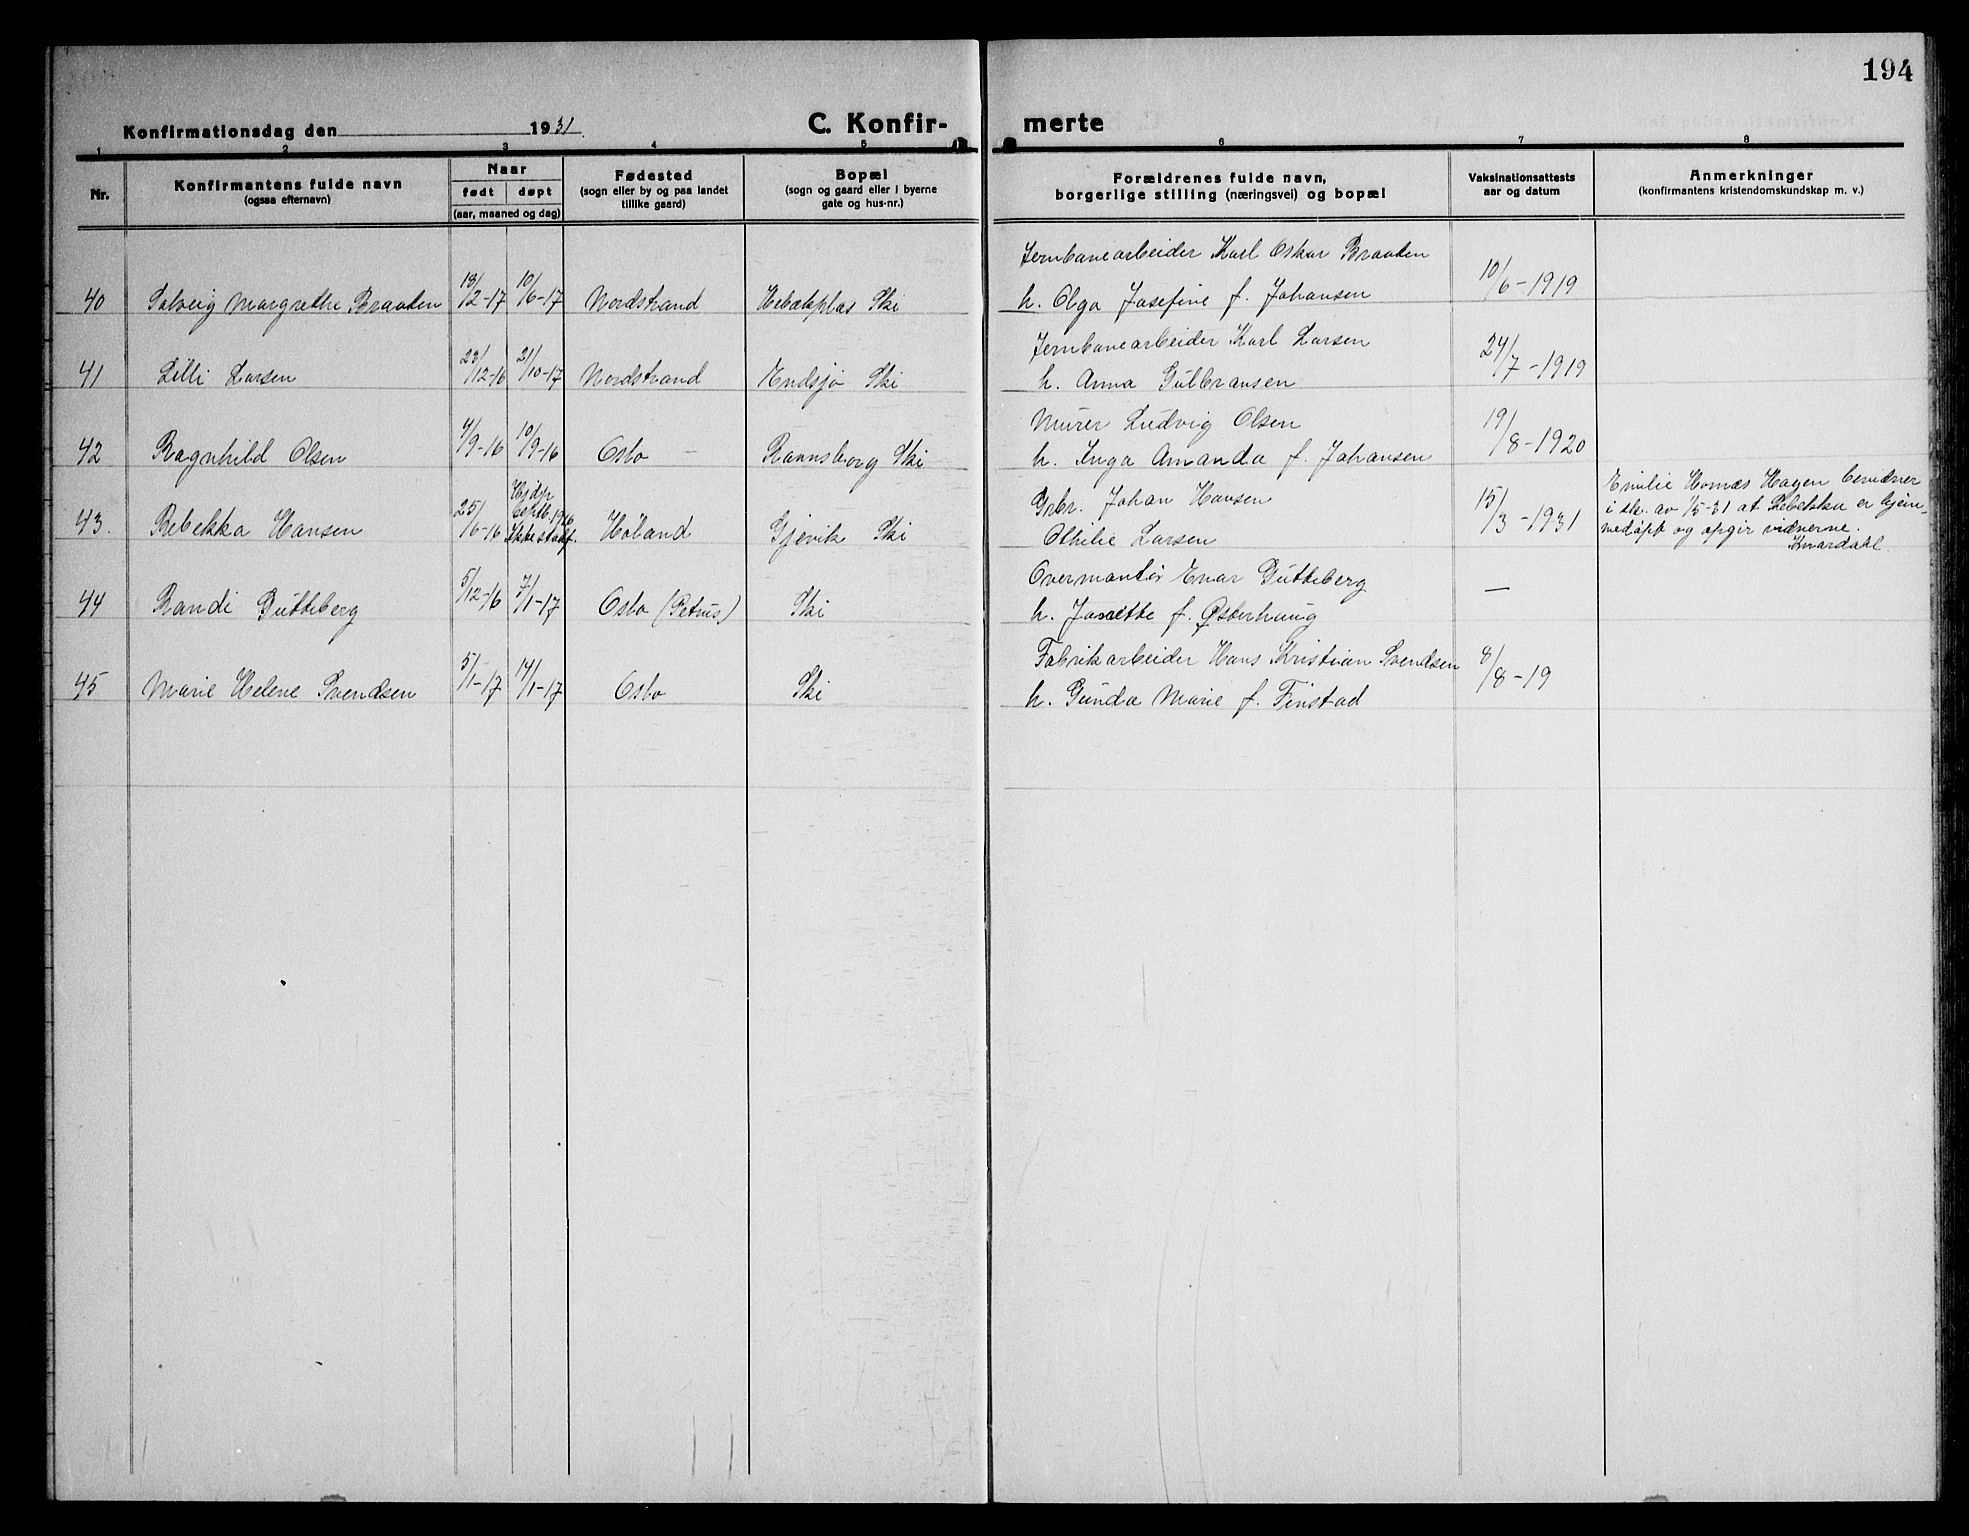 194
Konfirmationsdag den 1931. C. Konfir- merte
1 2 3 4 5 6 7 8
Nr. Konfirmantens fulde navn (ogsaa efternavn) Naar født døpt (aar, maaned og dag) Fødested (sogn eller by og paa landet tillike gaard) Bopæl (sogn og gaard eller i byerne gate og hus-nr.) Forældrenes fulde navn, borgerlige stilling (næringsvei) og bopæl Vaksinationsattests aar og datum Anmerkninger (konfirmantens kristendomskundskap m. v.)
Jernbanearbeider Karl Oskar Braaten
40 Solveig Margrethe Braaten 18/2-17 10/6-17 Nordstrand Ski h. Olga Josefine f. Johansen 10/6-1919
Jernbanearbeider Karl Larsen
41 Lilli Larsen 23/12-16 21/10-17 Nordstrand Endsjø Ski h. Anna Gulbransen 24/7-1919
Murer Ludvig Olsen
42 Ragnhild Olsen 4/9-16 10/9-16 Oslo – Ravnsborg Ski h. Inga Amanda f. Johansen 19/8-1920
Grbr. Johan Hansen Emilie Hornæs Hagen bevidner
43. Rebekka Hansen 25/6-16 Hjdp. septb. 1916 Ikke stadf. Høland Gjevik Ski Othilie Larsen 15/3-1931 i skr. av 1/5-31 at Rebekka er hjem-
medøpt og opgir vidnerne.
Knardahl
Overmontør Enar Gutteberg
44 Randi Gutteberg 5/12-16 7/1-17 Oslo (Petrus) Ski h. Janette f. Østerhaug —
Fabrikarbeider Hans Kristian Svendsen
45 Marie Helene Svendsen 5/1-17 14/1-17 Oslo Ski h. Gunda Marie f. Finstad 8/8-19